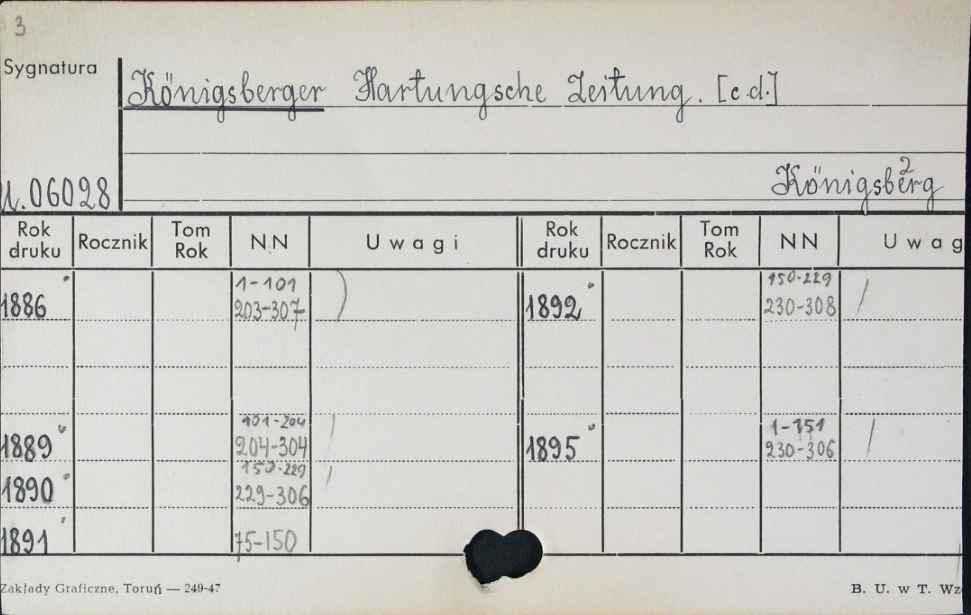 3
Sygnatura
Königsberger Hartungsche Zeitung. [c.d.]
2
06028 Königsberg
Rok druku Rocznik Tom Rok NN Uwagi Rok druku Rocznik Tom Rok NN Uwag
1-101 150-229
1886 203-307 1892 230-308
101-204 1-151
1889 204-304 1895 230-306
150-229
1890 229-306
1891 75-150
Zakłady Graficzne, Toruń — 249-47 B. U. w T. Wz